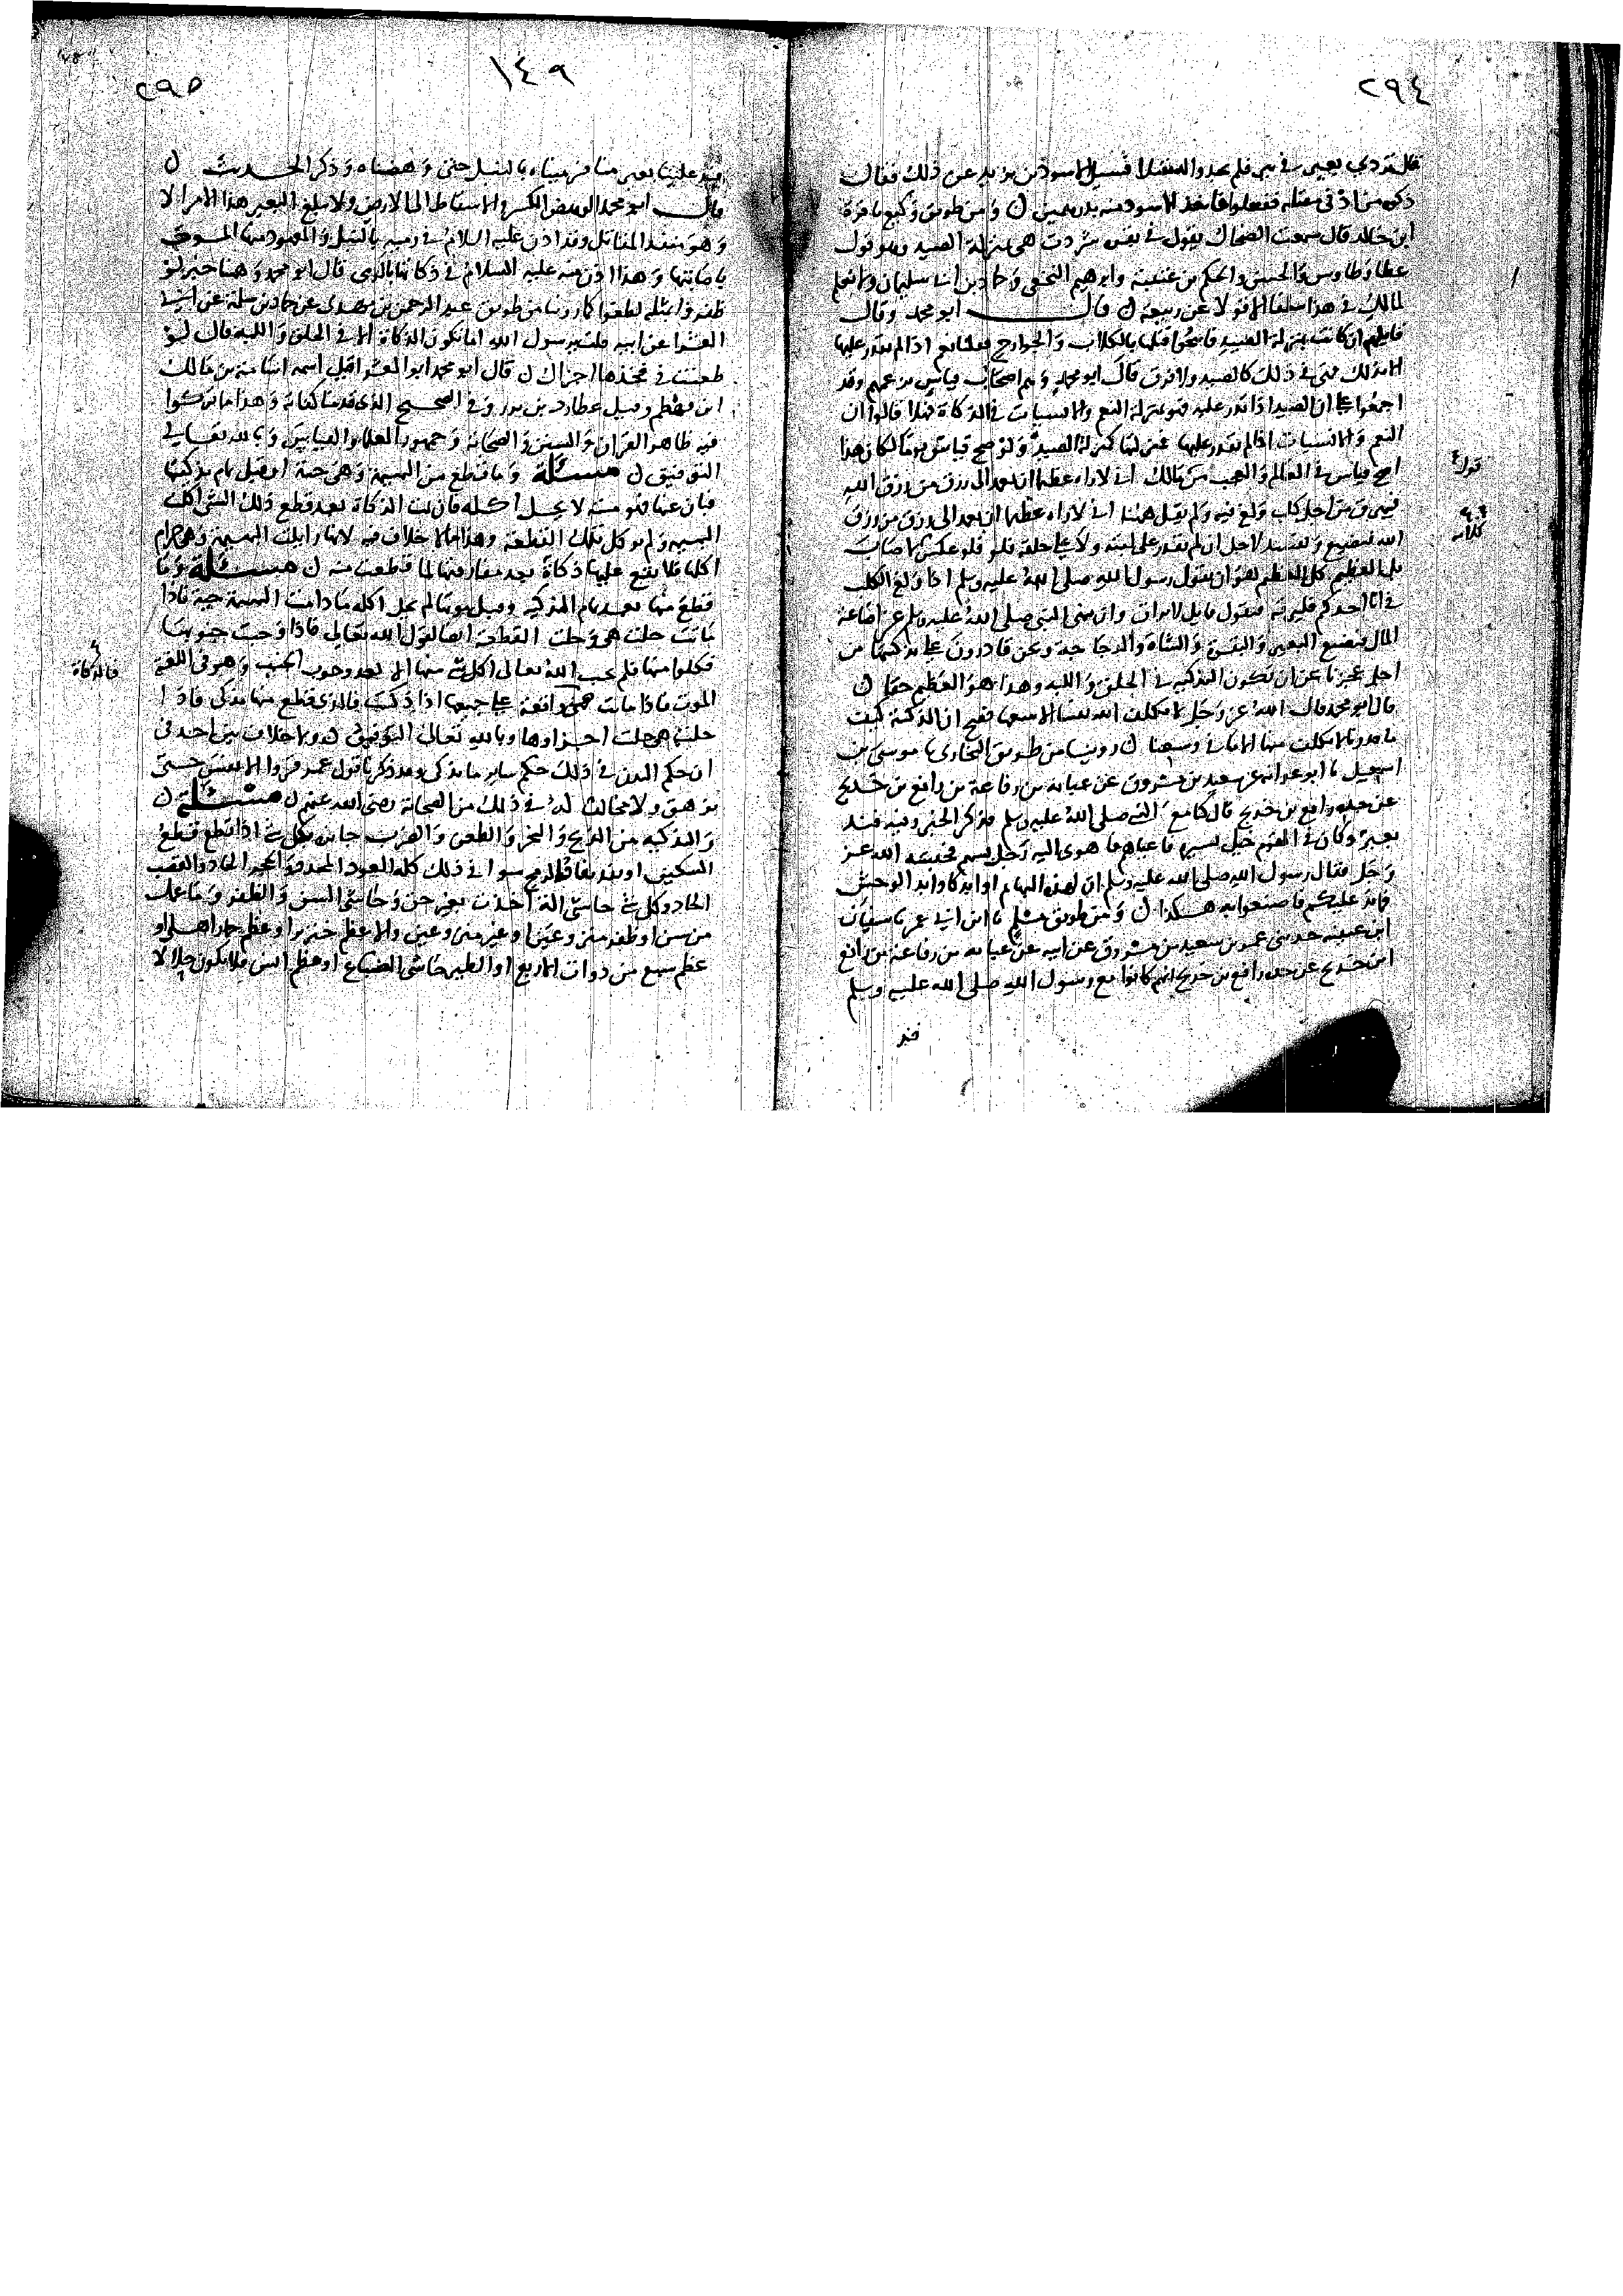 ٢٩٤
قال تردى بعير في بير فلم يجدوا له مقتلا فسيل الاسود بن يزيد عن ذلك فقال
ذكوه من ادنى مقتله ففعلوا فاخذ الاسود منه بدرهمين ومن طريق وكيع نا قرة
ابن خالد قال سمعت الضحاك يقول في بقرة شردت هي بمنزلة الصيد وهو قول
عطا وطاوس والحسن والحكم بن عتيبة وابرهيم النخعي وحماد بن ابي سليمان وما نعلم
لمالك في هذا سلفا الا قولا عن ربيعة قال ابو محمد وقال
قايلهم ان كانت بمنزلة الصيد فابيحوا قتلها بالكلاب والجوارح فقلنا نعم اذا لم نقدر عليها
الا بذلك فهي في ذلك كالصيد ولا فرق قال ابو محمد وهم اصحاب قياس بزعمهم وقد
اجمعوا على ان الصيد اذا قدر عليه فهو بمنزلة النعم والانسيات في الذكاة فهلا قالوا ان
النعم والانسيات اذا لم نقدر عليها فمنزلتها كمنزلة الصيد ولو صح قياس يوما لكان هذا
اصح قياس في العالم والعجب من مالك اني لاراه عظيما ان يعمد الى رزق من رزق الله
فيهرق من اجل كلب ولغ فيه ولم يقل ههنا اني لاراه عظيما ان يعمد الى رزق من رزق
الله فيضيع ويفسد لاجل ان لم نقدر على لبته ولا على حلقه فلو عكس كلامه لاصاب
بل العظيم كل العظيم هو ان يقول رسول الله صلى الله عليه وسلم اذا ولغ الكلب
في انا احدكم فليهرقه فيقول قايل لا يراق وان نهى النبي صلى الله عليه وسلم عن اضاعة
المال فيضيع البعير والبقرة والشاة والدجاجة ونحن قادرون على تذكيتها من
اجل عجزنا عن ان تكون التذكية في الحلق واللبة وهذا هو العظيم حقا
قال ابو محمد قال الله عز وجل لا يكلف الله نفسا الا وسعها فصح ان الذكية كيف
ما قدرنا لا نكلف منها الا ما في وسعنا روينا من طريق البخاري نا موسى بن
اسمعيل نا ابو عوانة عن سعيد بن مسروق عن عباية بن رفاعة بن رافع بن خديج
عن جده رافع بن خديج قال كنا مع النبي صلى الله عليه وسلم فذكر الخبر وفيه فند
بعير وكان في القوم خيل يسيرة فاعياهم فاهوى اليه رجل بسهم فحبسه الله عز
وجل فقال رسول الله صلى الله عليه وسلم ان لهذه البهايم اوابد كاوابد الوحش
فما ند عليكم فاصنعوا به هكذا ومن طريق مسلم نا ابن ابي عمر نا سفيان
ابن عيينة حدثني عمر بن سعيد بن مسروق عن ابيه عن عباية بن رفاعة بن رافع
ابن خديج عن جده رافع بن خديج انهم كانوا مع رسول الله صلى الله عليه وسلم
فند
١٤٩
٢٩٥
فند علينا بعير منا فرميناه بالنبل حتى وهضناه وذكر الحديث
قال ابو محمد الوهض الكسر والاسقاط الى الارض ولا يبلغ البعير هذا الامر الا
وهو منفذ المقاتل وقد اذن عليه السلام في رميه بالنبل والمعهود منها الموت
باصابتها وهذا اذن منه عليه السلام في ذكاتها بالرمي قال ابو محمد وهنا خبر لو
ظفروا بمثله لطغوا كما روينا من طريق عبد الرحمن بن مهدي عن حماد بن سلمة عن ابي
العشرا عن ابيه قلت يا رسول الله اما تكون الذكاة الا في الحلق واللبة قال لو
طعنت في فخذها اجزاك قال ابو محمد ابو العشرا قيل اسمه اسامة بن مالك
ابن قهطم وقيل عطارد بن برز وفي الصحيح الذي قدمنا كفاية وهذا مما تركوا
فيه ظاهر القران والسنن والصحابة وجمهور العلما والقياس وبالله تعالى
التوفيق مسئلة وما قطع من البهيمة وهي حية او قبل تمام تذكيتها
فبان عنها فهو ميتة لا يحل اكله فان تمت الذكاة بعد قطع ذلك الشي اكلت
البهيمة ولم توكل تلك القطعة وهذا ما لا خلاف فيه لانها زايلت البهيمة وهي حرام
اكلها فلا تقع عليها ذكاة بعد مفارقتها لما قطعت منه مسئلة وما
قطع منها بعد تمام التذكية وقبل موتها لم يحل اكله ما دامت البهيمة حية فاذا
ماتت حلت هي وحلت القطعة ايضا لقول الله تعالى فاذا وجبت جنوبها
فكلوا منها فلم يبح الله تعالى اكل شي منها الا بعد وجوب الجنب وهو في اللغة
الموت فاذا ماتت فالذكاة واقعة على جميعها اذا ذكيت فالذي قطع منها مذكى فاذا
حلت هي حلت اجزاوها وبالله تعالى التوفيق ولا خلاف بين احد في
ان حكم البدن في ذلك حكم ساير ما يذكى وقد ذكرنا قول عمر اقروا الانفس حتى
تزهق ولا مخالف له في ذلك من الصحابة رضي الله عنهم مسئلة
والتذكية من الذبح والنحر والطعن والضرب جايزة بكل شي اذا قطع قطع
السكين او نفذ نفاذ الرمح سوا في ذلك كله العود المحدد والحجر الحاد والقصب
الحاد وكل شي حاشى الة اخذت بغير حق وحاشى السن والظفر وما عمل
من سن او ظفر منزوعين او غير منزوعين والا عظم خنزير او عظم حمار اهلي او
عظم سبع من ذوات الاربع او الطير حاشى الضباع او عظم انسان فلا يكون حلالا
فالذكاة